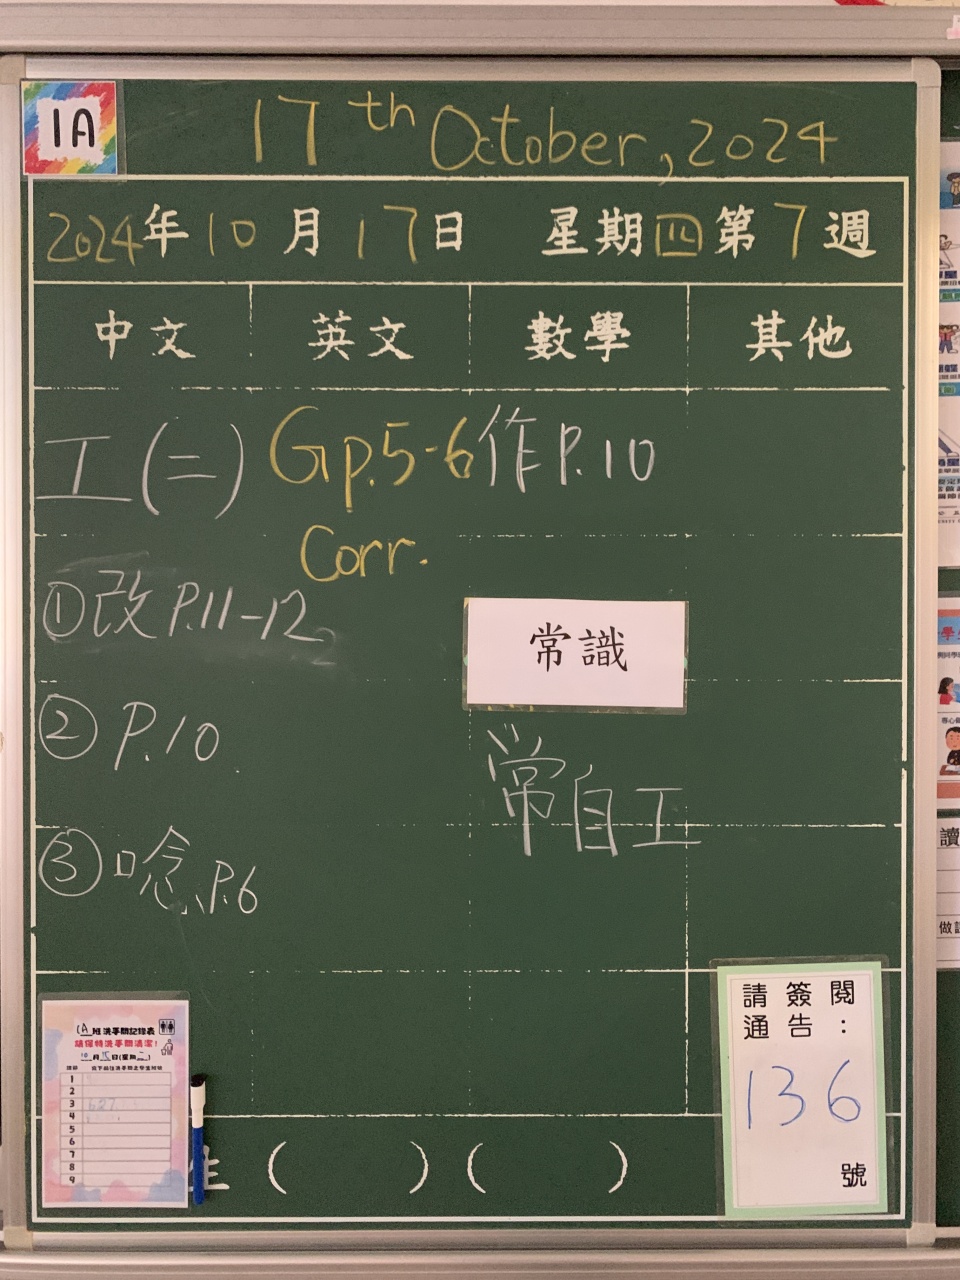 1A
17th October, 2024
2024年10月17日 星期四第7週
中文 英文 數學 其他
工(二) Gp.5-6 作P.10
Corr.
①改P.11-12
常識
②P.10
常自工
③唸P.6
請簽閱
通告：
136
號
1A班洗手間記錄表
請保持洗手間清潔!
1
2
3
4
5
6
7
8
9
生 ( ) ( )